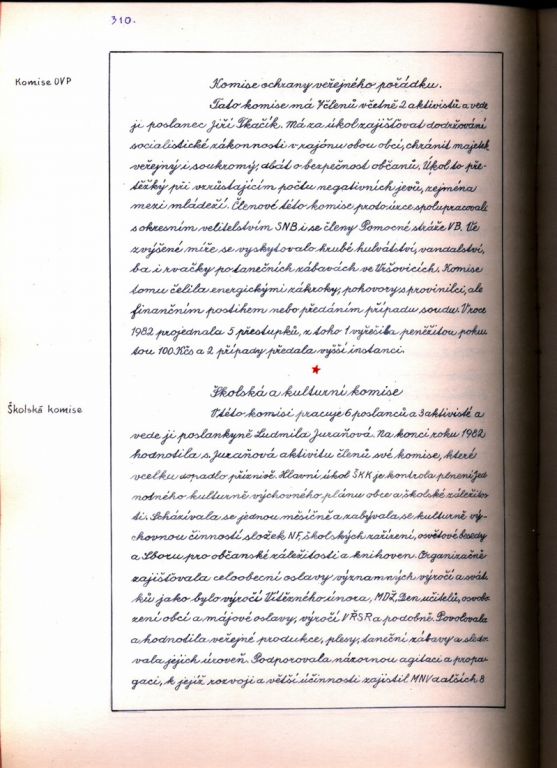 310.
Komise OVP
Komise ochrany veřejného pořádku.
Tato komise má 7 členů včetně 2 aktivistů a vede
ji poslanec Jiří Tkačík. Má za úkol zajišťovat dodržování
socialistické zákonnosti v rajónu obou obcí, chránit majetek
veřejný i soukromý, dbát o bezpečnost občanů. Úkol to pře-
těžký při vzrůstajícím počtu negativních jevů, zejména
mezi mládeží. Členové této komise proto úzce spolupracovali
s okresním velitelstvím SNB i se členy Pomocné stráže VB. Ve
zvýšené míře se vyskytovalo hrubé hulvátství, vandalství,
ba i rvačky po tanečních zábavách ve Vršovicích. Komise
tomu čelila energickými zákroky, pohovory s provinilci, ale
finančním postihem nebo předáním případu soudu. V roce
1982 projednala 5 přestupků, z toho 1 vyřešila peněžitou poku
tou 100 Kčs a 2 případy předala vyšší instanci.
Školská komise
Školská a kulturní komise
V této komisi pracuje 6 poslanců a 3 aktivisté a
vede ji poslankyně Ludmila Juraňová. Na konci roku 1982
hodnotila s. Juraňová aktivitu členů své komise, které
vcelku dopadlo příznivě. Hlavní úkol ŠKK je kontrola plnení jed
notného kulturně výchovného plánu obce a školské záležitos
ti. Scházívala se jednou měsíčně a zabývala se kulturně vý-
chovnou činností složek NF, školských zařízení, osvětové besedy
a Sboru pro občanské záležitosti a knihoven. Organizačně
zajišťovala celoobecní oslavy významných výročí a svát
ků jako bylo výročí Vítězného února, MDŽ, Den učitelů, osvobo
zení obcí a májové oslavy, výročí VŘSR a podobně. Povolovala
a hodnotila veřejné produkce, plesy, taneční zábavy a sledo
vala jejich úroveň. Podporovala názornou agitaci a propa-
gaci, k jejíž rozvoji a větší účinnosti zajistil MNV dalších 8